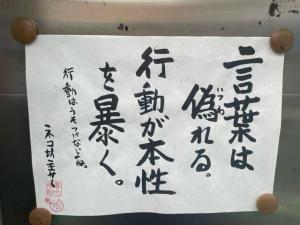 言葉は
いつわ
偽れる。
行動が本性
を暴く。
行動はうそつけないよね。